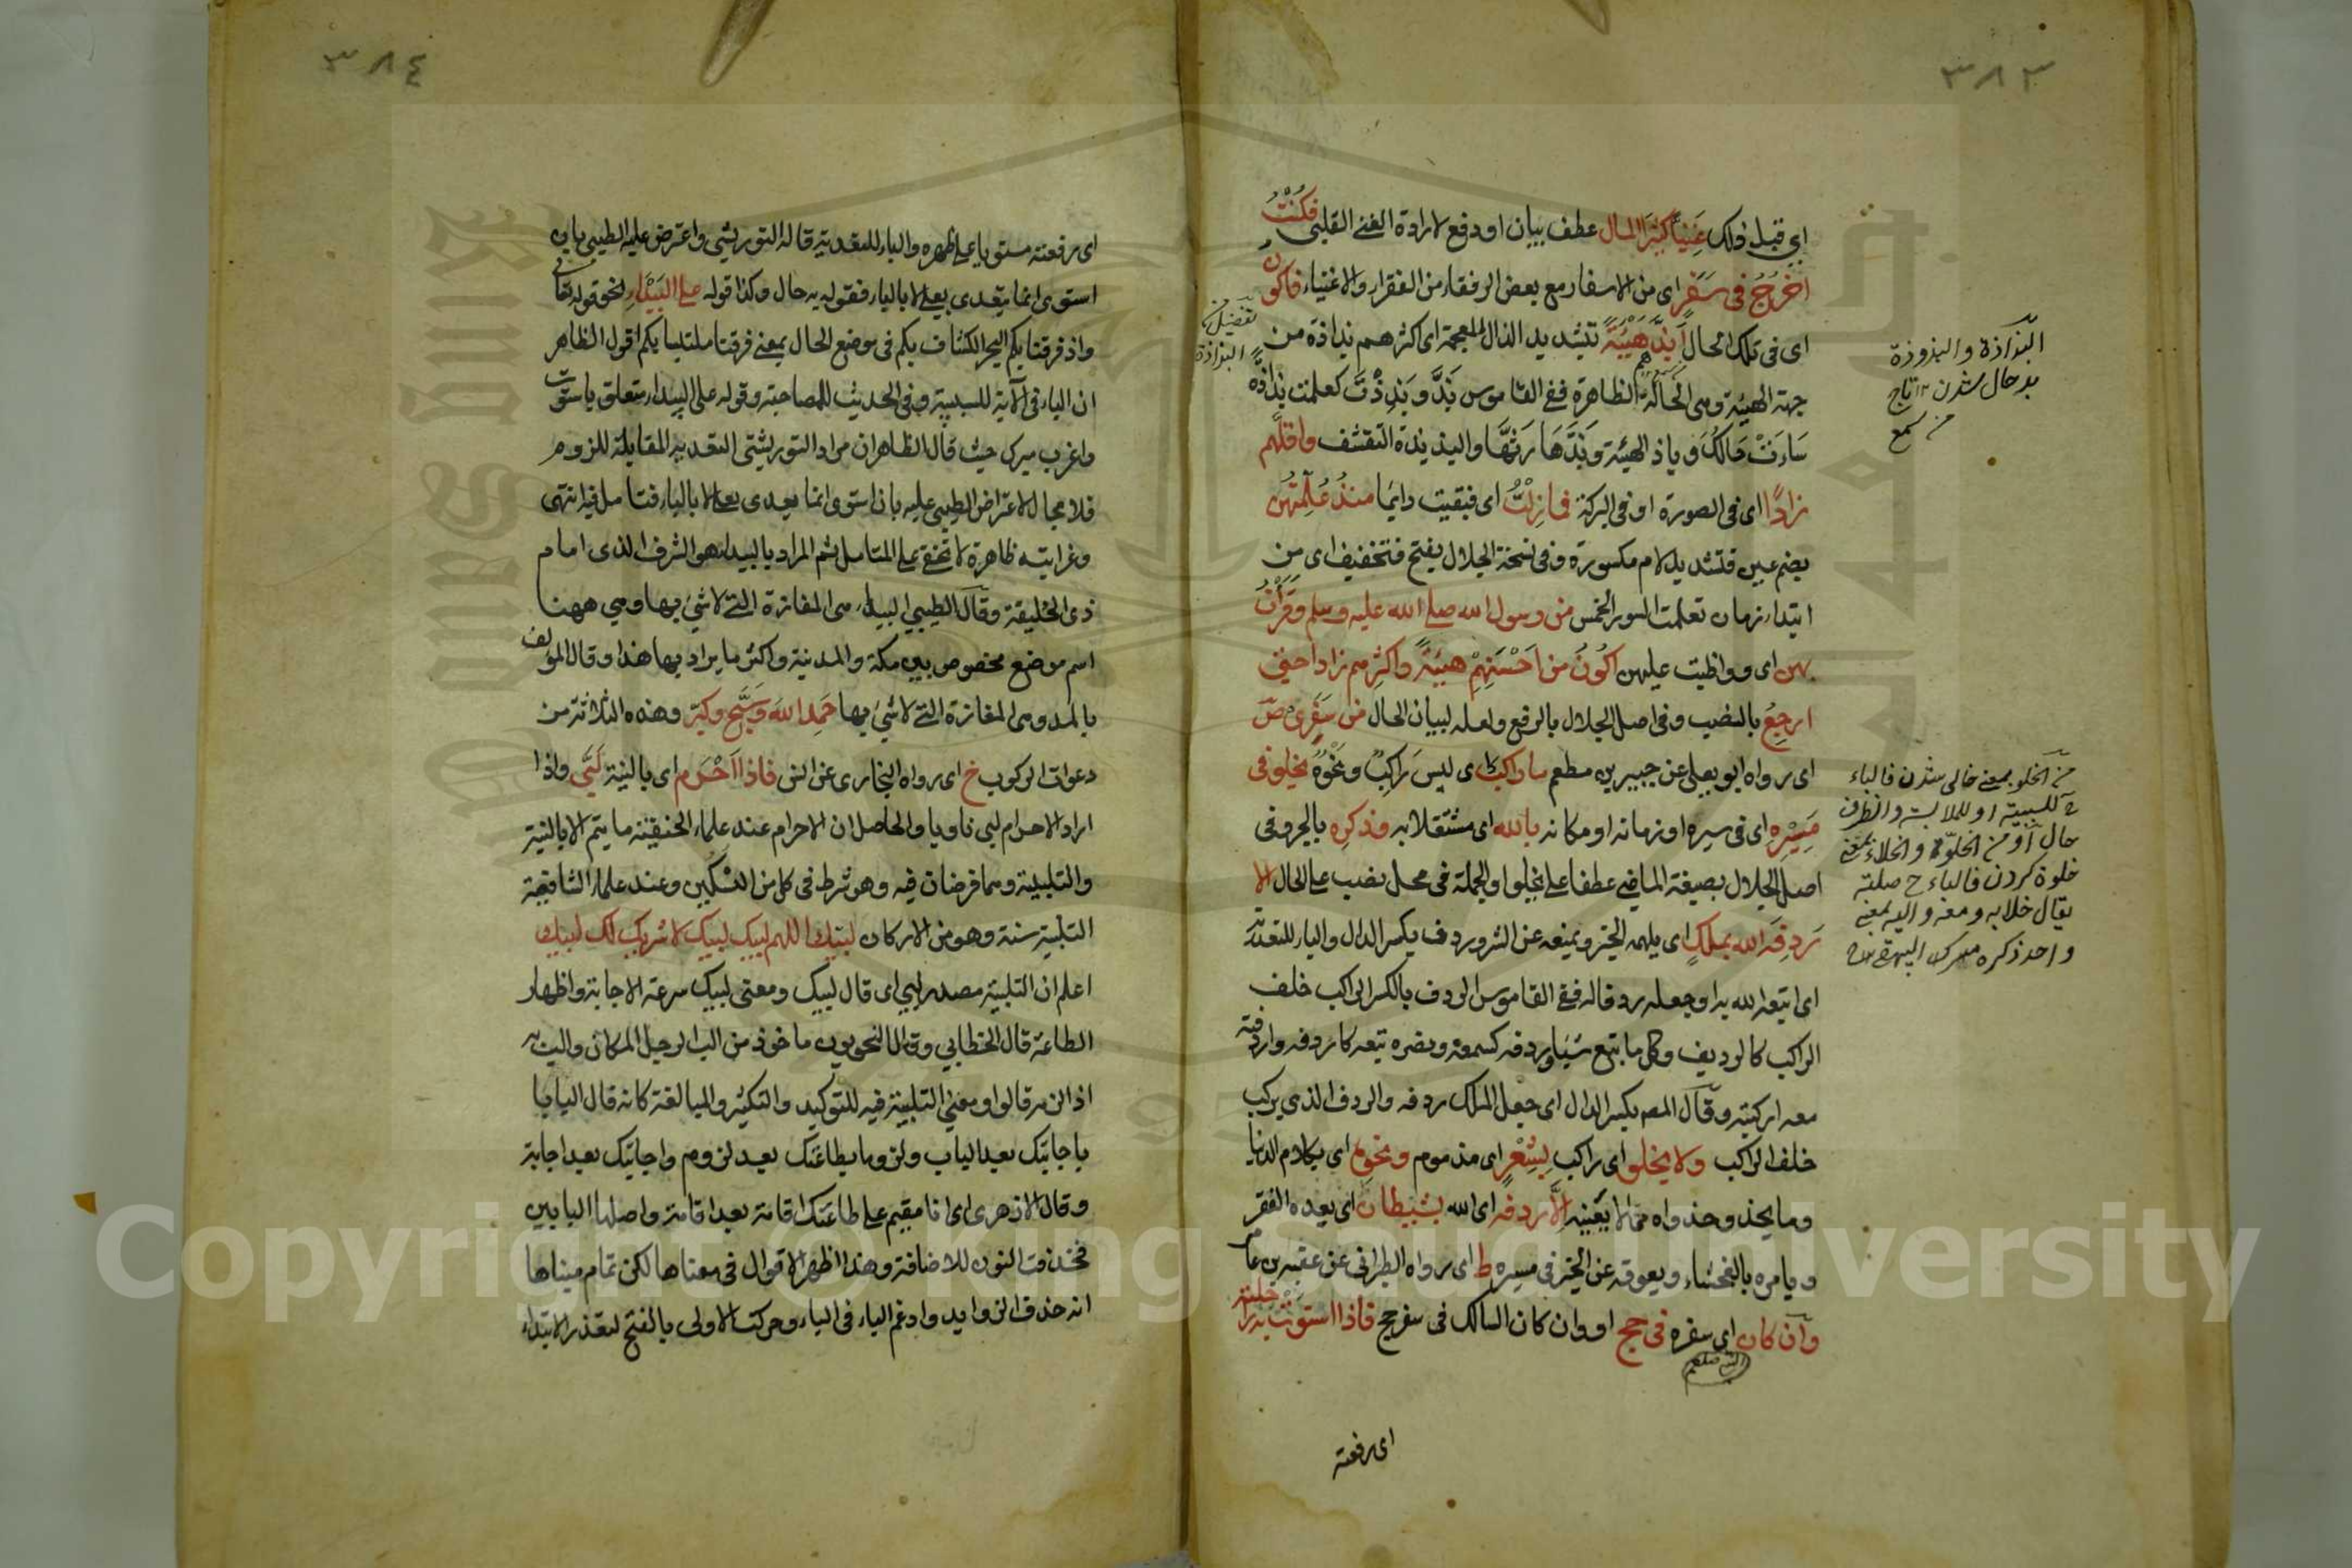 ٣٨٣
اى قبل ذلك غَنِيًّا كَثِيرَ المال عطف بيان او دفع لارادة الغنى القلبى فكُنْتُ
اخرُجُ فى سَفَرٍ اى من الاسفار مع بعض الرفقاء من الفقراء والاغنياء فاكون
اى فى تلك الحال اَبَذَّ هَيْئَةً بتشديد الذال المعجمة اى اكثرهم بذاذة من
جهة الهيئة وهى الحالة الظاهرة ففى القاموس بَذَّ وبَذِذْتَ كعلمت بذاذة
سَاءَتْ حَالُكَ وباذ الهيئة وبَذَّهَا رَثُّهَا والبذيذة التقشف واقلَّهم
زادًا اى فى الصورة او فى البركة فما زِلْتُ اى فبقيت دايما منذُ عُلِّمتُهن
بضم عين فتشديد لام مكسورة وفى نسخة الجلال بفتح فتخفيف اى من
ابتداء زمان تعلمت السور الخمس من رسول الله صلى الله عليه وسلم وقَرَأْتُ
بهن اى وواظبت عليهن اكُونُ من اَحْسَنِهِمْ هيئَةً واكثرِهم زادا حتى
ارجِعَ بالنصب وفى اصل الجلال بالرفع ولعله لبيان الحال من سَفَرِى ص
اى رواه ابو يعلى عن جبير بن مطعم ما من راكب اى ليس راكِبٌ ونحْوُه يخلو فى
مَسِيْرِهِ اى فى سيره او زمانه او مكانه بالله اى مشتغلا به وذكرِه بالجر وفى
اصل الجلال بصيغة الماضى عطفا على يخلوا والجملة فى محل نصب على الحال الا
رَدِفَه الله بملكٍ اى يلهمه الخير ويمنعه عن الشر وردف بكسر الدال والباء للتعدية
اى اتبعه الله به او جعله ردفا له ففى القاموس الردف بالكسر الراكب خلف
الراكب كالرديف وكل ما تبع شيئا وردفه كسمعه ونصره تبعه كاردفه واردفته
معه اركبته وقال المص بكسر الدال اى جعل الملك ردفه والردف الذى يركب
خلف الراكب ولا يخلو اى راكب بِشِعْرٍ اى مذموم ونحوِه اى بكلام الدنيا
وما يحذو حذواه مما لا يعنيه اِلَّا ردفه اى الله بشيطان اى يعده الفقر
ويامره بالفحشاء ويعوقه عن الخير فى مسيره ط اى رواه الطبرانى عن عقبة بن عامر
وان كان اى سفره فى حج او وان كان السالك فى سفر حج فاذا استوَتْ به راحلته
النبى صلعم
اى رفعته
تفضيل من
البذاذة
البذاذة والبذوذة
بد حال شدن ١٢ تاج
من سمع
من الخلو بمعنى خالى شدن فالباء
ح للسببية او للملابسة والظرف
حال او من الخلوة والخلاء بمعنى
خلوة كردن فالباء ح صلته
يقال خلا به ومعه واليه بمعنى
واحد ذكره البيهقى
٣٨٤
اى رفعته مستويا على ظهره والباء للتعدية قاله التوربشتى واعترض عليه الطيبى بان
استوى انما يتعدى بعلى لا بالباء فقوله به حال وكذا قوله على البَيْدَاءِ نحو قوله تعالى
واذ فرقنا بكم البحر الكشاف بكم فى موضع الحال بمعنى فرقنا ملتبسا بكم اقول الظاهر
ان الباء فى الآية للسببية وفى الحديث للمصاحبة وقوله على البيداء متعلق باستوت
واغرب ميرك حيث قال الظاهر ان مراد التوربشتى التعدية المقابلة للزوم
فلا مجال لاعتراض الطيبى عليه بان استوى انما يعدى بعلى لا بالباء فتامل فيه انتهى
وغرابته ظاهرة لا تخفى على المتامل ثم المراد بالبيداء هو الشرف الذى امام
ذى الحليفة وقال الطيبى البيداء هى المفازة التى لا شئ بها وهى ههنا
اسم موضع مخصوص بين مكة والمدينة واكثر ما يراد بها هذا وقال المؤلف
بالمد وهى المفازة التى لا شئ بها حَمِدَ اللهَ وَسَبَّح وكبّر وهذه الثلاثة من
دعوات الركوب خ اى رواه البخارى عن انس فاذا اَحْرَم اى بالنية لَبَّى واذا
اراد الاحرام لبى ناويا والحاصل ان الاحرام عند علماء الحنفية ما يتم الا بالنية
والتلبية وهما فرضان فيه وهو شرط فى كل من النسكين وعند علماء الشافعية
التلبية سنة وهو من الاركان لبيك اللهم لبيك لبيك لا شريك لك لبيك
اعلم ان التلبية مصدر لبى اى قال لبيك ومعنى لبيك سرعة الاجابة واظهار
الطاعة قال الخطابي وقال النحويون ماخوذ من الب الرجل بالمكان والب به
اذا لزمه قالوا ومعنى التلبية فيه للتوكيد والتكثير والمبالغة كانه قال البابا
باجابتك بعد الباب ولزوما بطاعتك بعد لزوم واجابتك بعد اجابة
وقال الازهرى اى انا مقيم على طاعتك اقامة بعد اقامة واصلها البابين
فحذفت النون للاضافة وهذا اظهر الاقوال فى معناها لكن تمام مبناها
انه حذف الزوايد وادغم الباء فى الباء وحركت الاولى بالفتح لتعذر الابتداء
Copyright © King Saud University